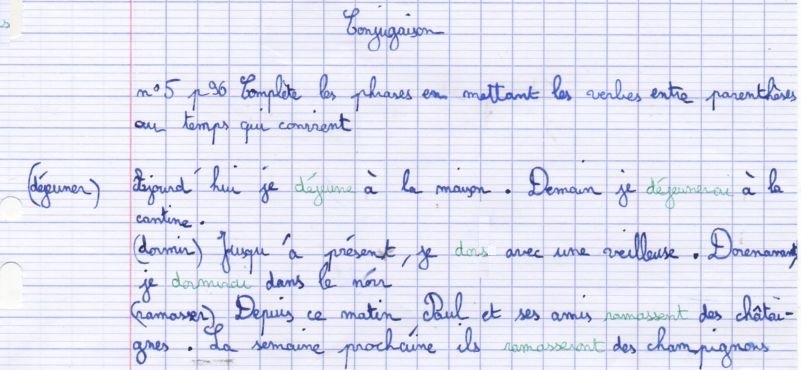 Conjugaison
n°5 p96 Complète les phrases en mettant les verbes entre parenthèses
au temps qui convient
(déjeuner) Aujourd'hui je déjeune à la maison. Demain je déjeunerai à la
cantine.
(dormir) Jusqu'à présent, je dors avec une veilleuse. Dorenavant,
je dormirai dans le noir
(ramasser) Depuis ce matin Paul et ses amis ramassent des châtai-
gnes. La semaine prochaine ils ramasseront des champignons